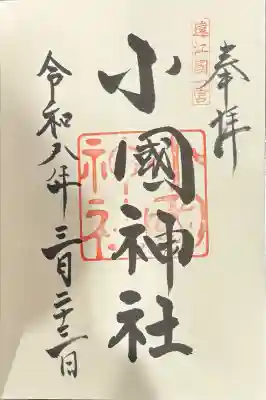 奉拝
遠江國一宮
小國神社
令和八年 三月二十三日